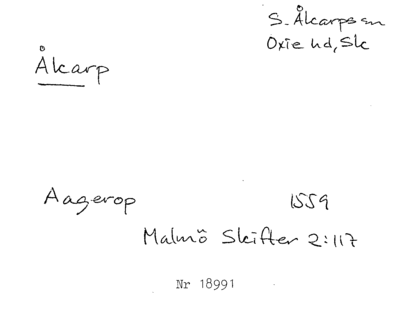 S. Åkarps sn
Oxie hd, Sk
Åkarp
Aagerop 1559
Malmö Skifter 2:117
Nr 18991